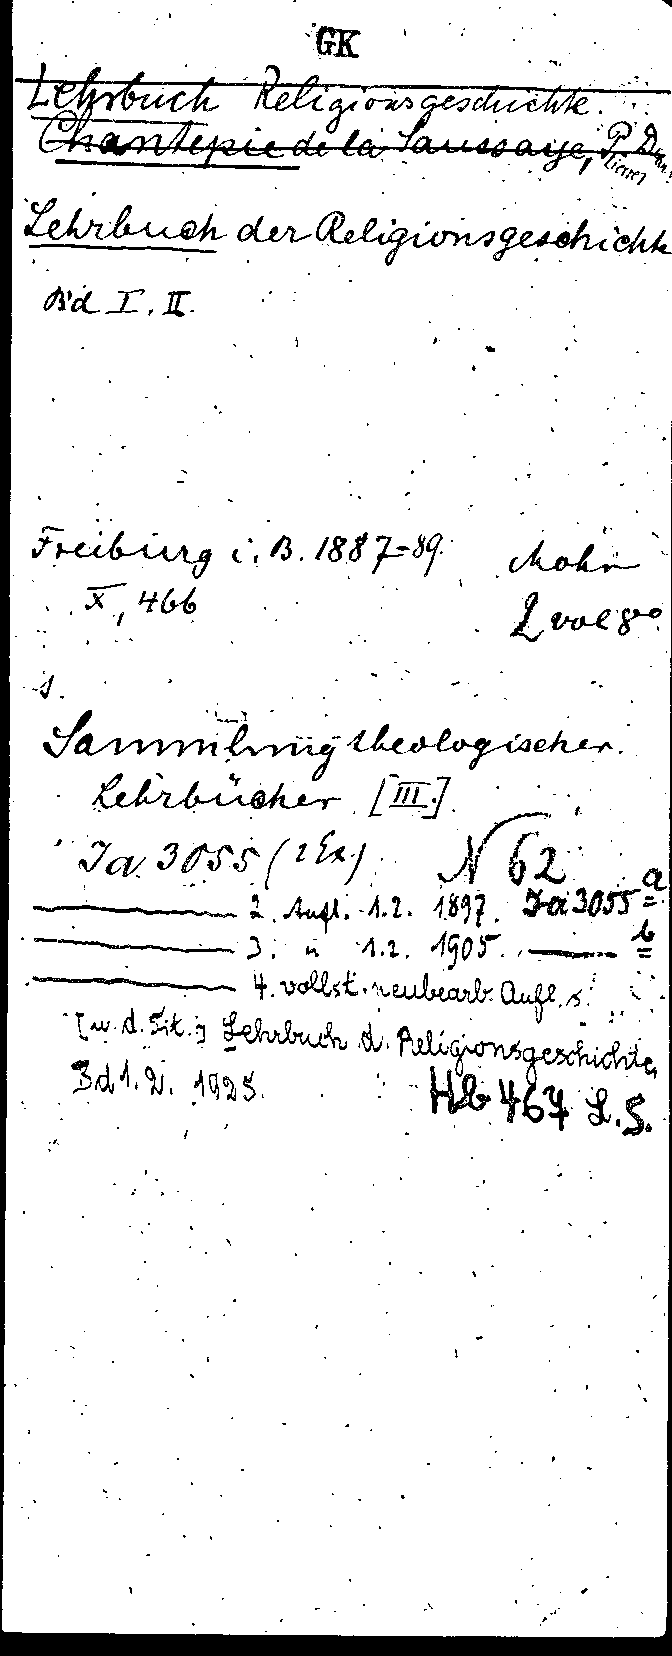 GK
Lehrbuch Religionsgeschichte.
Chantepie de la Saussaye, P. D.
Lehrbuch der Religionsgeschichte
Bd I. II.
Freiburg i. B. 1887-89. Mohr
X, 466 2 vol 8°
s.
Sammlung theologischer
Lehrbücher [III.]
Ia 3055 (2 Ex.) N 62
2. Aufl. 1.2. 1897. Ia 3055 a
3. " 1.2. 1905. b
4. vollst. neubearb. Aufl. s.
[u. d. Tit.:] Lehrbuch d. Religionsgeschichte,
Bd 1. 2. 1925. Hb 467 L.S.